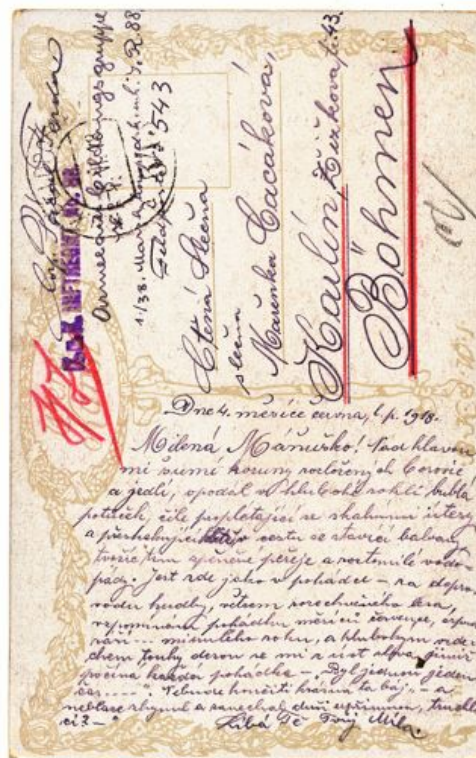 Armeeausbildungsgruppe
1/38. Marsch I. R. 88.
Feldpost 543
Ctěná slečna
slečna
Mařenka Cacáková,
Karlín, Žižkova č. 43.
Böhmen
Dne 4. měsíce června, l. p. 1918.
Milená Mánuško! Nad hlavou
mi šumí koruny rozložených borovic
a jedlí, opodál v hluboké rokli bublá
potůček, čile proplétající se skalními útesy
a přeskakující cestu se stavící balvany
tvoříc tím zpěněné peřeje a roztomilé vodo-
pády. Jest zde jako v pohádce – za dopro-
vodu hudby, větrem rozechvěného lesa,
vzpomínám pohádky měsíců července, srpna
září ... minulého roku, a hlubokým vzde-
chem touhy derou se mi z úst slova, jimiž
počíná každá pohádka – "Byl jednou jeden
čas ....." Nebude končiti krásná ta báj, – a
neblaze zhynul a zanechal duši upřímnou, truchlí-
cí? –"
Líbá Tě Tvůj Míla.